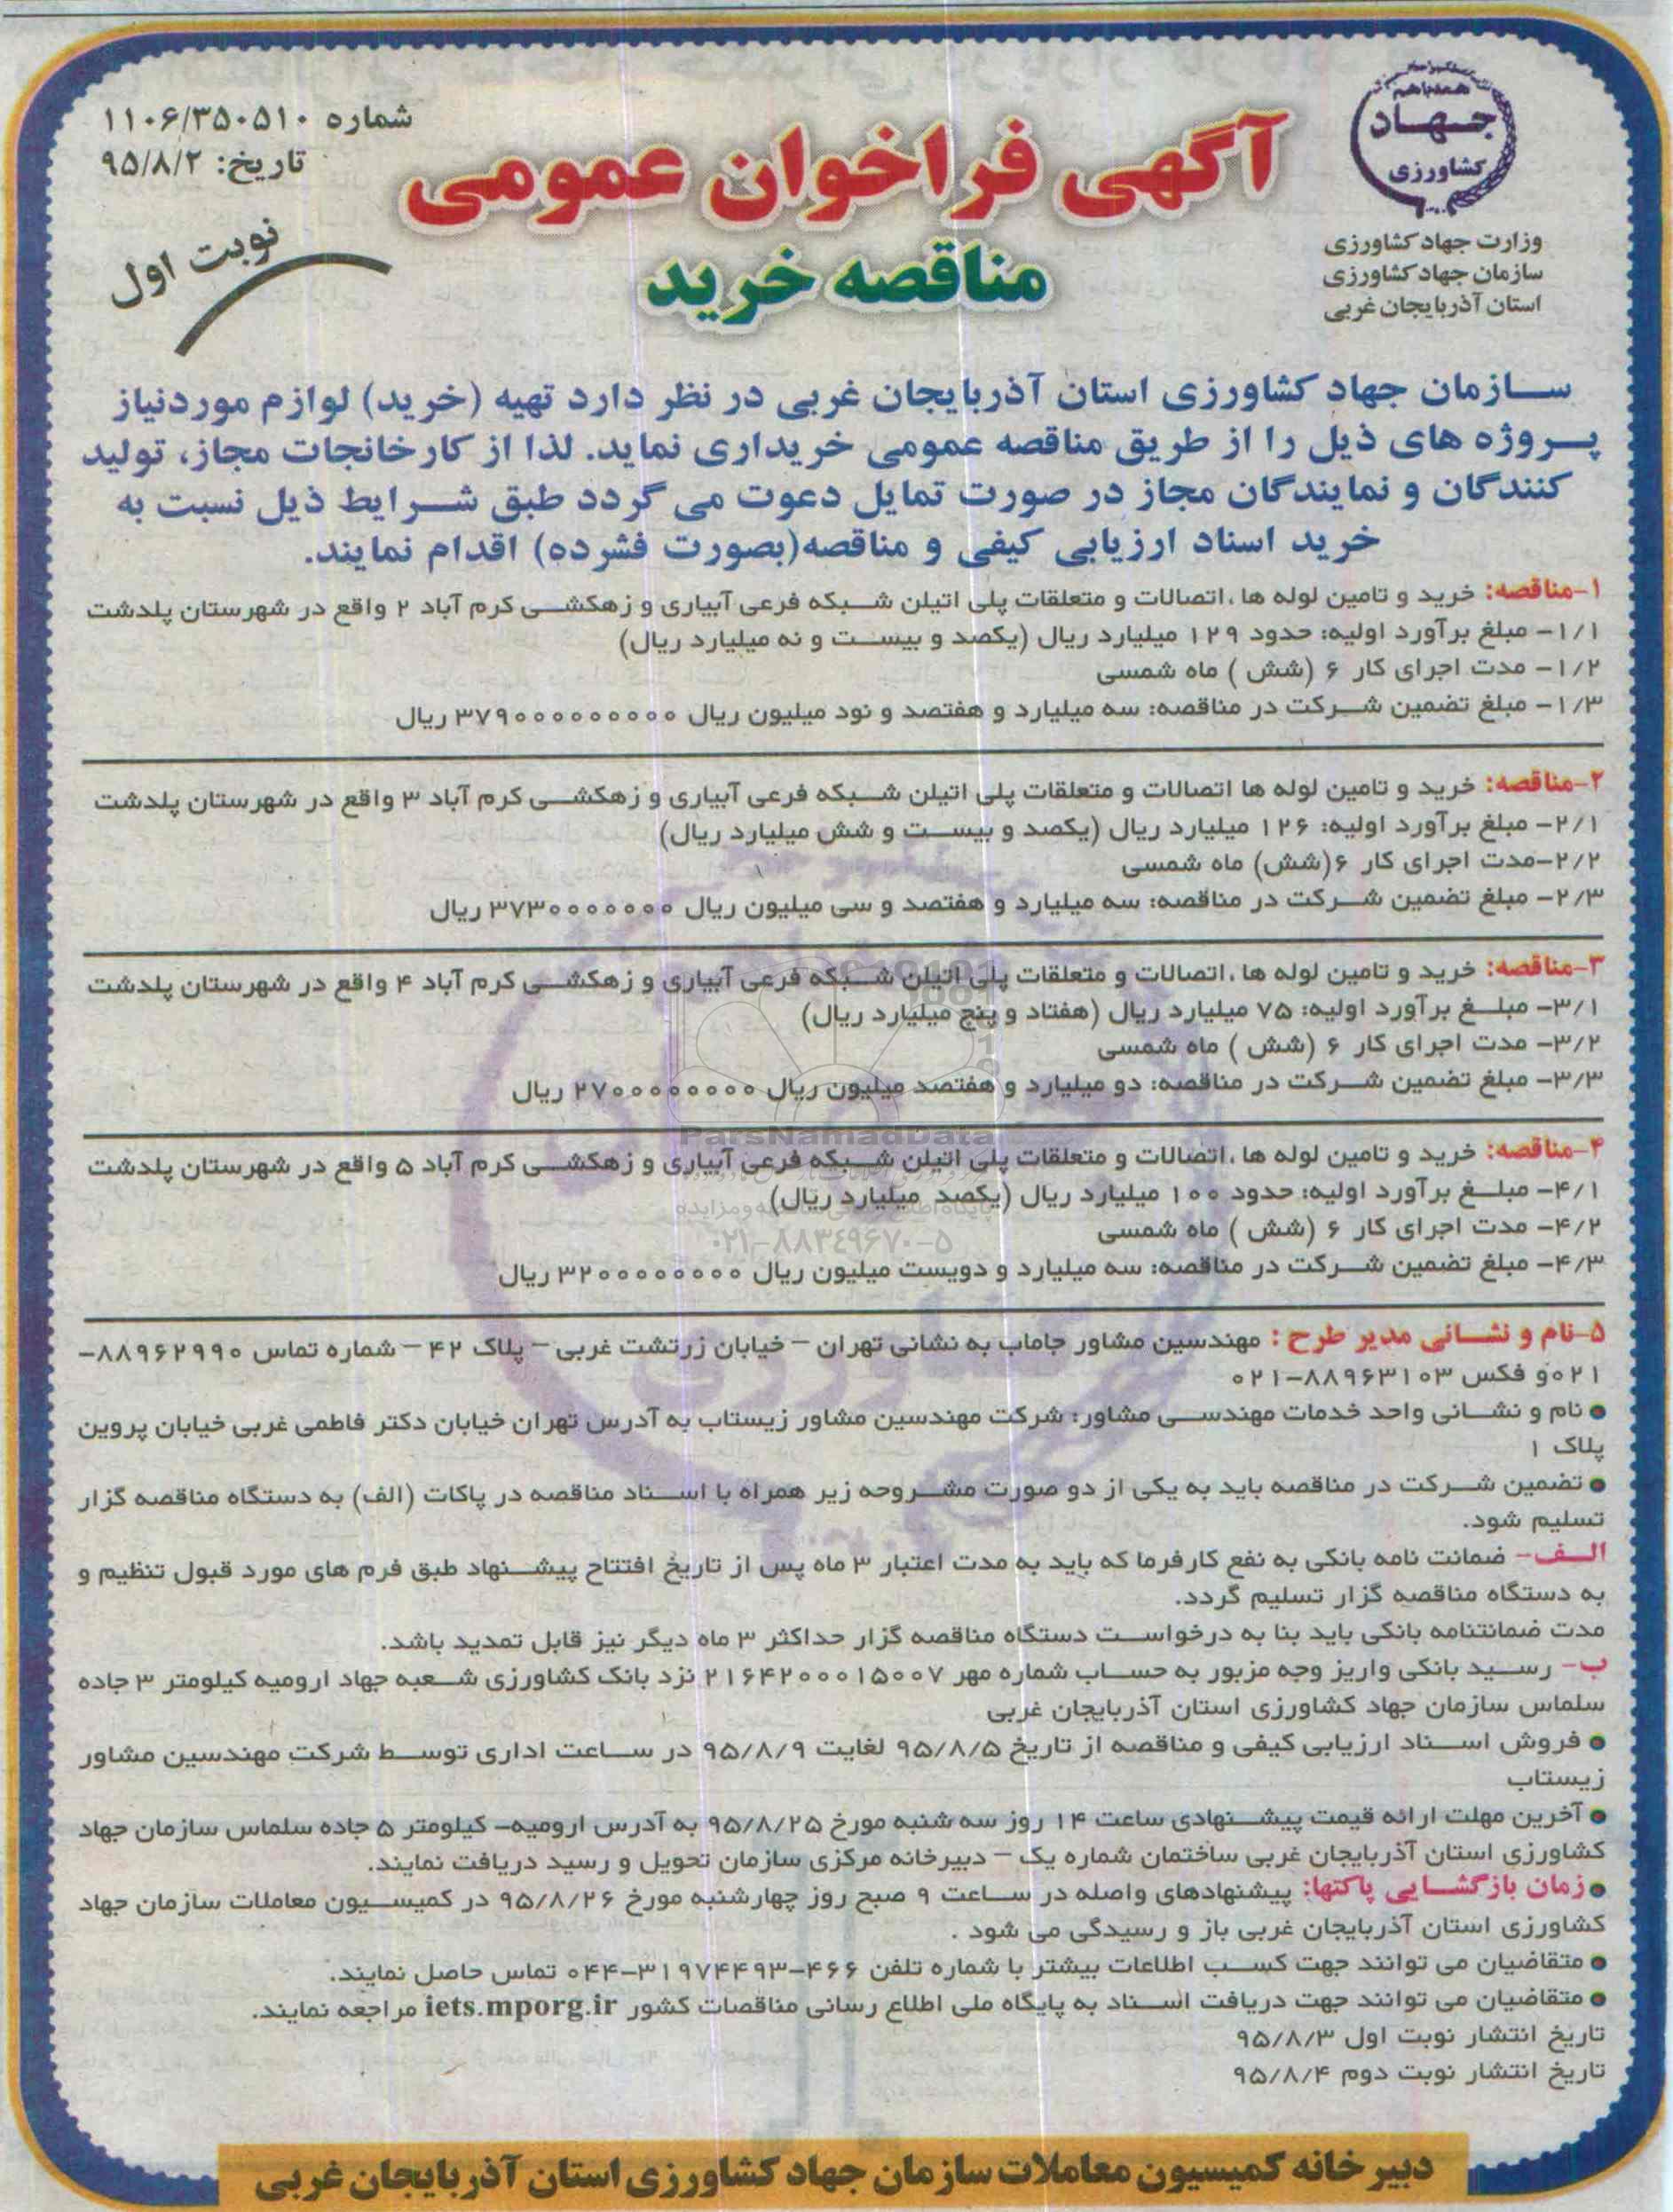 همه با هم
جهاد
کشاورزی
وزارت جهاد کشاورزی
سازمان جهاد کشاورزی
استان آذربایجان غربی
آگهی فراخوان عمومی
مناقصه خرید
شماره ۱۱۰۶/۳۵۰۵۱۰
تاریخ: ۹۵/۸/۲
نوبت اول
سازمان جهاد کشاورزی استان آذربایجان غربی در نظر دارد تهیه (خرید) لوازم موردنیاز
پروژه های ذیل را از طریق مناقصه عمومی خریداری نماید. لذا از کارخانجات مجاز، تولید
کنندگان و نمایندگان مجاز در صورت تمایل دعوت می گردد طبق شرایط ذیل نسبت به
خرید اسناد ارزیابی کیفی و مناقصه(بصورت فشرده) اقدام نمایند.
۱-مناقصه: خرید و تامین لوله ها ،اتصالات و متعلقات پلی اتیلن شبکه فرعی آبیاری و زهکشی کرم آباد ۲ واقع در شهرستان پلدشت
۱/۱- مبلغ برآورد اولیه: حدود ۱۲۹ میلیارد ریال (یکصد و بیست و نه میلیارد ریال)
۱/۲- مدت اجرای کار ۶ (شش ) ماه شمسی
۱/۳- مبلغ تضمین شرکت در مناقصه: سه میلیارد و هفتصد و نود میلیون ریال ۳۷۹۰۰۰۰۰۰۰۰۰۰ ریال
۲-مناقصه: خرید و تامین لوله ها اتصالات و متعلقات پلی اتیلن شبکه فرعی آبیاری و زهکشی کرم آباد ۳ واقع در شهرستان پلدشت
۲/۱- مبلغ برآورد اولیه: ۱۲۶ میلیارد ریال (یکصد و بیست و شش میلیارد ریال)
۲/۲-مدت اجرای کار ۶(شش) ماه شمسی
۲/۳- مبلغ تضمین شرکت در مناقصه: سه میلیارد و هفتصد و سی میلیون ریال ۳۷۳۰۰۰۰۰۰۰ ریال
۳-مناقصه: خرید و تامین لوله ها ،اتصالات و متعلقات پلی اتیلن شبکه فرعی آبیاری و زهکشی کرم آباد ۴ واقع در شهرستان پلدشت
۳/۱- مبلغ برآورد اولیه: ۷۵ میلیارد ریال (هفتاد و پنج میلیارد ریال)
۳/۲- مدت اجرای کار ۶ (شش ) ماه شمسی
۳/۳- مبلغ تضمین شرکت در مناقصه: دو میلیارد و هفتصد میلیون ریال ۲۷۰۰۰۰۰۰۰۰ ریال
ParsNamadData
۴-مناقصه: خرید و تامین لوله ها ،اتصالات و متعلقات پلی اتیلن شبکه فرعی آبیاری و زهکشی کرم آباد ۵ واقع در شهرستان پلدشت
۴/۱- مبلغ برآورد اولیه: حدود ۱۰۰ میلیارد ریال (یکصد میلیارد ریال)
۴/۲- مدت اجرای کار ۶ (شش ) ماه شمسی
۰۲۱-۸۸۳۴۹۶۷۰-۵
۴/۳- مبلغ تضمین شرکت در مناقصه: سه میلیارد و دویست میلیون ریال ۳۲۰۰۰۰۰۰۰۰ ریال
۵-نام و نشانی مدیر طرح : مهندسین مشاور جاماب به نشانی تهران – خیابان زرتشت غربی – پلاک ۴۲ – شماره تماس ۸۸۹۶۲۹۹۰-
۰۲۱و فکس ۸۸۹۶۳۱۰۳-۰۲۱
● نام و نشانی واحد خدمات مهندسی مشاور: شرکت مهندسین مشاور زیستاب به آدرس تهران خیابان دکتر فاطمی غربی خیابان پروین
پلاک ۱
● تضمین شرکت در مناقصه باید به یکی از دو صورت مشروحه زیر همراه با اسناد مناقصه در پاکات (الف) به دستگاه مناقصه گزار
تسلیم شود.
الف- ضمانت نامه بانکی به نفع کارفرما که باید به مدت اعتبار ۳ ماه پس از تاریخ افتتاح پیشنهاد طبق فرم های مورد قبول تنظیم و
به دستگاه مناقصه گزار تسلیم گردد.
مدت ضمانتنامه بانکی باید بنا به درخواست دستگاه مناقصه گزار حداکثر ۳ ماه دیگر نیز قابل تمدید باشد.
ب- رسید بانکی واریز وجه مزبور به حساب شماره مهر ۲۱۶۴۲۰۰۰۱۵۰۰۷ نزد بانک کشاورزی شعبه جهاد ارومیه کیلومتر ۳ جاده
سلماس سازمان جهاد کشاورزی استان آذربایجان غربی
● فروش اسناد ارزیابی کیفی و مناقصه از تاریخ ۹۵/۸/۵ لغایت ۹۵/۸/۹ در ساعت اداری توسط شرکت مهندسین مشاور
زیستاب
● آخرین مهلت ارائه قیمت پیشنهادی ساعت ۱۴ روز سه شنبه مورخ ۹۵/۸/۲۵ به آدرس ارومیه- کیلومتر ۵ جاده سلماس سازمان جهاد
کشاورزی استان آذربایجان غربی ساختمان شماره یک – دبیرخانه مرکزی سازمان تحویل و رسید دریافت نمایند.
● زمان بازگشایی پاکتها: پیشنهادهای واصله در ساعت ۹ صبح روز چهارشنبه مورخ ۹۵/۸/۲۶ در کمیسیون معاملات سازمان جهاد
کشاورزی استان آذربایجان غربی باز و رسیدگی می شود .
● متقاضیان می توانند جهت کسب اطلاعات بیشتر با شماره تلفن ۴۶۶-۳۱۹۷۴۴۹۳-۰۴۴ تماس حاصل نمایند.
● متقاضیان می توانند جهت دریافت اسناد به پایگاه ملی اطلاع رسانی مناقصات کشور iets.mporg.ir مراجعه نمایند.
تاریخ انتشار نوبت اول ۹۵/۸/۳
تاریخ انتشار نوبت دوم ۹۵/۸/۴
دبیرخانه کمیسیون معاملات سازمان جهاد کشاورزی استان آذربایجان غربی